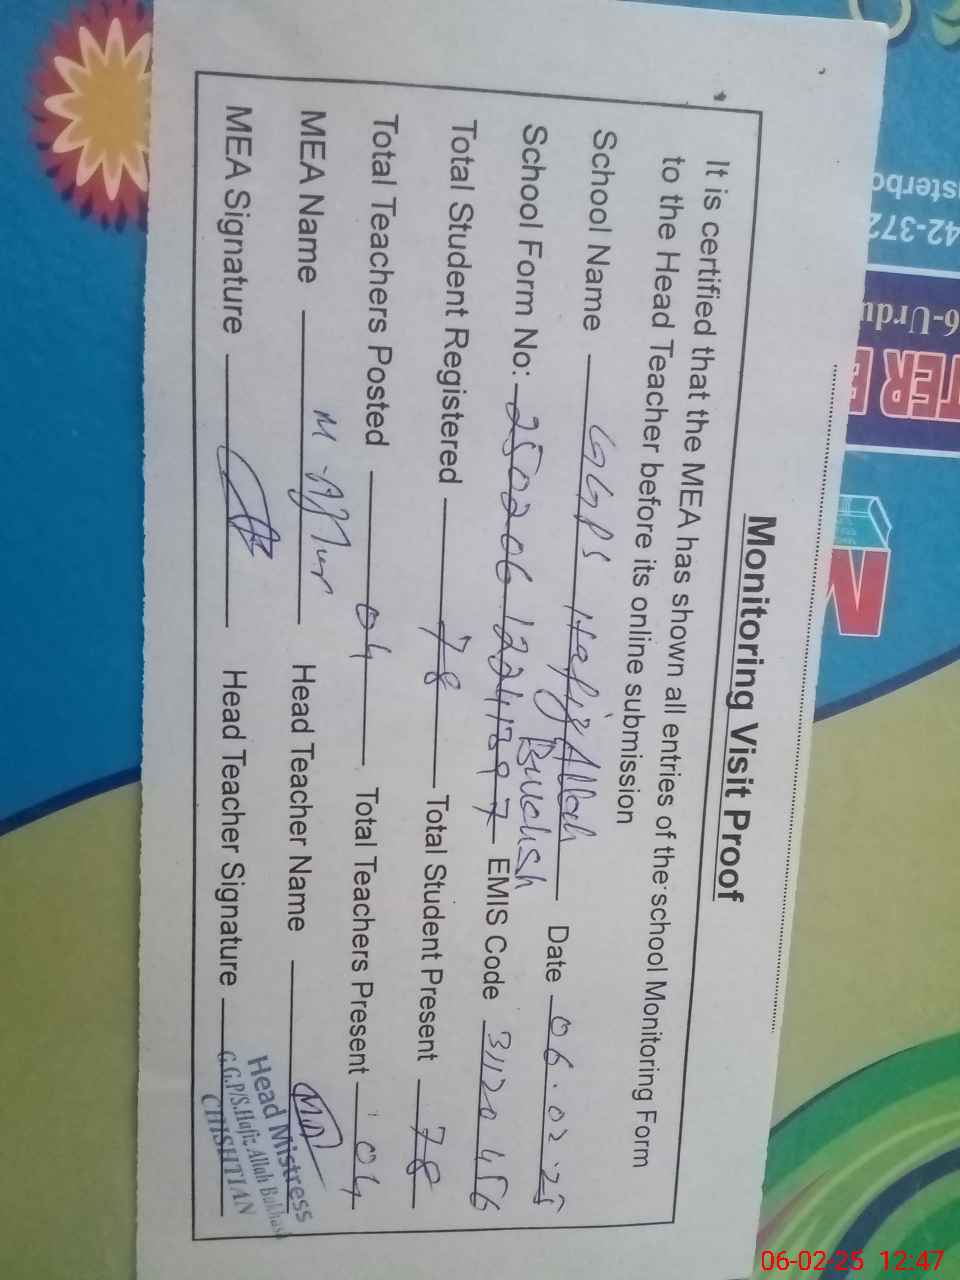 Monitoring Visit Proof
It is certified that the MEA has shown all entries of the school Monitoring Form
to the Head Teacher before its online submission
School Name GGPS Hafiz Allah Buchsh Date 06.02.25
School Form No: EMIS Code 31120456
Total Student Registered 78 Total Student Present 78
Total Teachers Posted 04 Total Teachers Present 04
MEA Name M Head Teacher Name
MEA Signature Head Teacher Signature
Head Mistress
G.G.P/S.Hafiz Allah Bukhash
CHISHTIAN
42-372
6-Urdu
TER
06-02-25 12:47